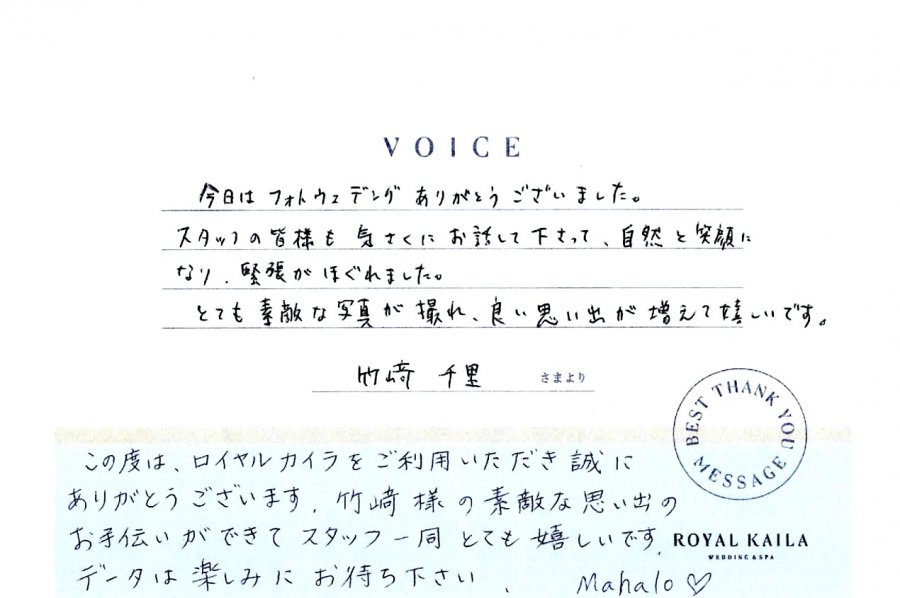 VOICE
今日はフォトウェデングありがとうございました。
スタッフの皆様も気さくにお話して下さって、自然と笑顔に
なり、緊張がほぐれました。
とても素敵な写真が撮れ、良い思い出が増えて嬉しいです。
竹﨑 千里 さまより
BEST THANK YOU MESSAGE
この度は、ロイヤルカイラをご利用いただき誠に
ありがとうございます。竹﨑様の素敵な思い出の
お手伝いができてスタッフ一同とても嬉しいです。
ROYAL KAILA
WEDDING & SPA
データは楽しみにお待ち下さい。
Mahalo♡